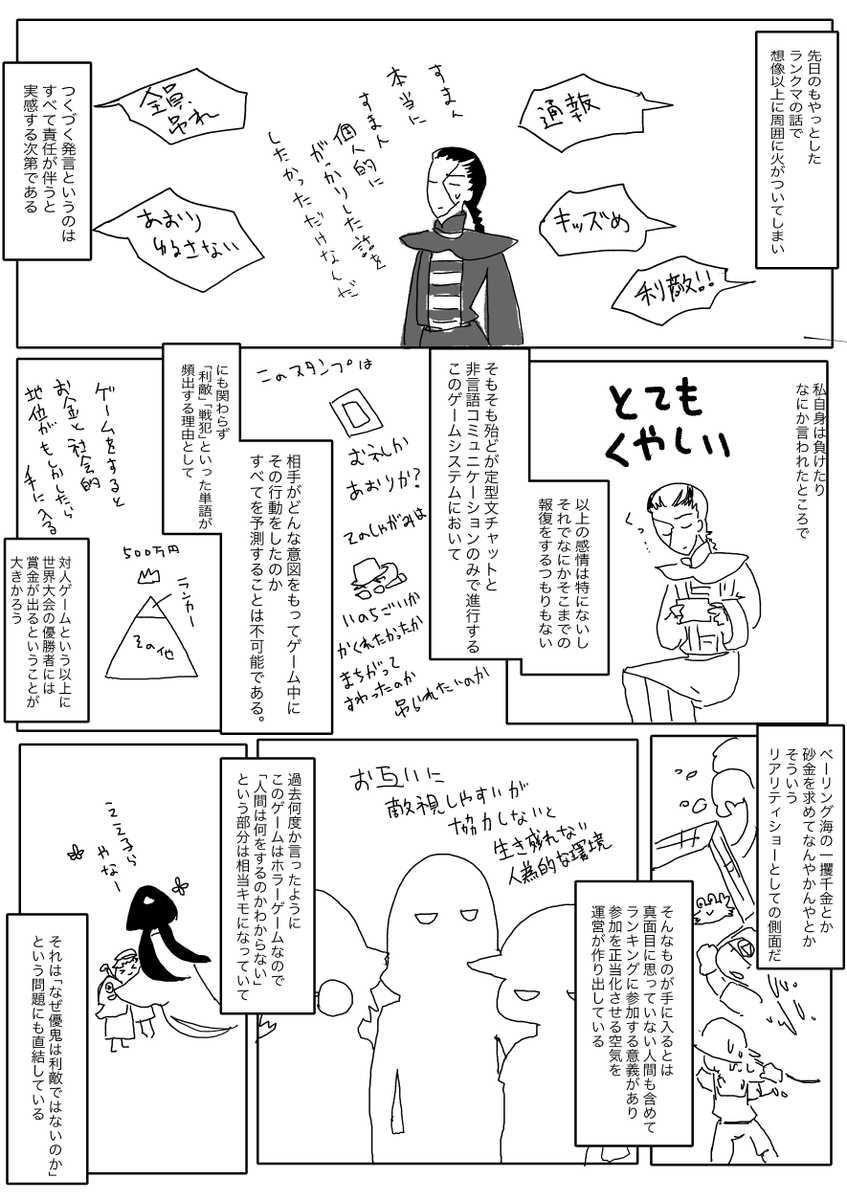 先日のもやっとした
ランクマの話で
想像以上に周囲に火がついてしまい
通報
キッズめ
利敵!!
すまん
本当に
すまん
個人的に
がっかりした話を
したかっただけなんだ
全員
吊れ
あおり
ゆるさない
つくづく発言というのは
すべて責任が伴うと
実感する次第である
私自身は負けたり
なにか言われたところで
とても
くやしい
くっ…
以上の感情は特にないし
それでなにかそこまでの
報復をするつもりもない
そもそも殆どが定型文チャットと
非言語コミュニケーションのみで進行する
このゲームシステムにおいて
このスタンプは
お礼か
あおりか?
そのしゃがみは
いのちごいか
かくれたかったか
まちがって
すわったのか
吊られたいのか
相手がどんな意図をもってゲーム中に
その行動をしたのか
すべてを予測することは不可能である。
にも関わらず
「利敵」「戦犯」といった単語が
頻出する理由として
ゲームをすると
お金と社会的
地位がもしかしたら
手に入る
500万円
ランカー
その他
対人ゲームという以上に
世界大会の優勝者には
賞金が出るということが
大きかろう
ベーリング海の一攫千金とか
砂金を求めてなんやかんやとか
そういう
リアリティショーとしての側面だ
そんなものが手に入るとは
真面目に思っていない人間も含めて
ランキングに参加する意義があり
参加を正当化させる空気を
運営が作り出している
お互いに
敵視しやすいが
協力しないと
生き残れない
人為的な環境
過去何度か言ったように
このゲームはホラーゲームなので
「人間は何をするのかわからない」
という部分は相当キモになっていて
ええ子ら
やなー
それは「なぜ優鬼は利敵ではないのか」
という問題にも直結している